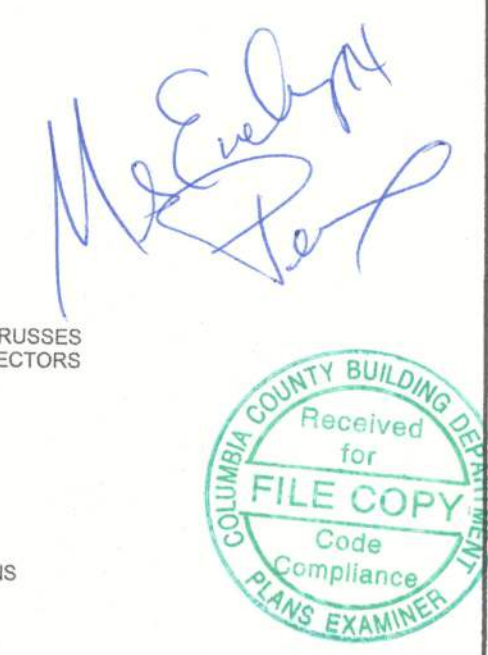 Ms Evelyn
RUSSES
ECTORS
COLUMBIA COUNTY BUILDING DEPARTMENT
Received
for
FILE COPY
Code
Compliance
PLANS EXAMINER
NS